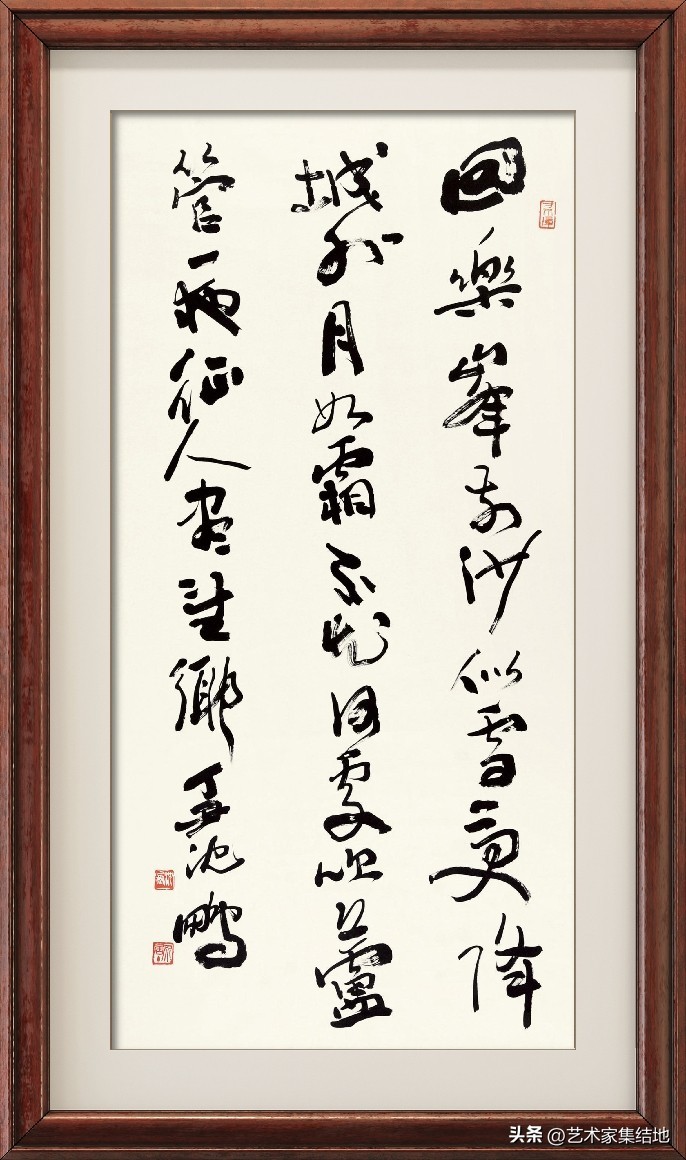 回樂峯前沙似雪受降
城外月如霜不知何處吹蘆
管一夜征人盡望鄉 沈鵬
头条 @艺术家集结地